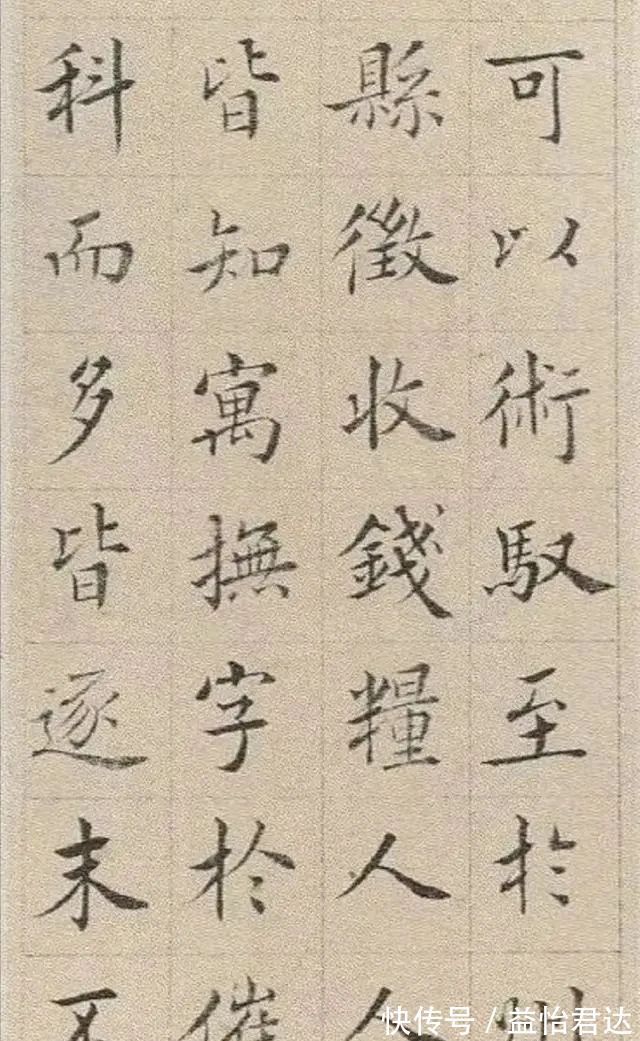 可以術馭至於州
縣徵收錢糧人人
皆知寓撫字於催
科而多皆逐末不
快传号／益怡君达